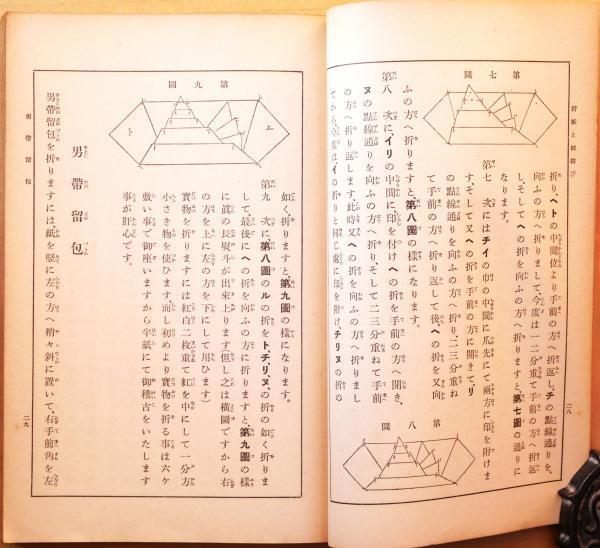 折紙と紐結び
二八
第七圖
折り、ヘトの中間位より手前の方へ折返し、チの點線通りを、
向ふの方へ折りまして、今度は一二分重て手前の方へ折返
し、そしてヘの折を向ふの方へ折りますと、第七圖の通りに
なります。
第七 次にはチイの巾の中間に爪先にて兩方に印を附けま
す、そして又ヘの折を手前の方に開きて、リ
の點線通りを向ふの方へ折り、二三分重ね
て手前の方へ折り返して後、ヘの折を又向
ふの方へ折りますと、第八圖の樣になります。
第八 次に、イリの中間に印を付けヘの折を手前の方へ開き、
ヌの點線通りを向ふの方へ折り、そして二三分重ねて手前
の方へ折り返します、此時又ヘの折を向ふの方へ折りまし
てから、今度は、イの折りと同じ處に印を附け、チリヌの折の
第八圖
第九圖
如く折りますと、第九圖の樣になります。
第九 次に第八圖のルの折をト、チ、リ、ヌ、の折の如く折りま
して最後にヘの折を向ふの方に折りますと、第九圖の樣
に眞の長熨斗が出來上ります(但し之は橫圖ですから右
の方を上に左の方を下にして用ひます)
實物を折りますには紅白二枚重て紅を中にして一分方
小さき物を使ひます、而し初めより實物を折る事は六ケ
敷い事で御座いますから半紙にて御稽古をいたします
事が肝心です。
男帶留包
男帶留包を折りますには紙を竪に左の方へ稍々斜に置いて、右手前角を左
男帶留包
二九